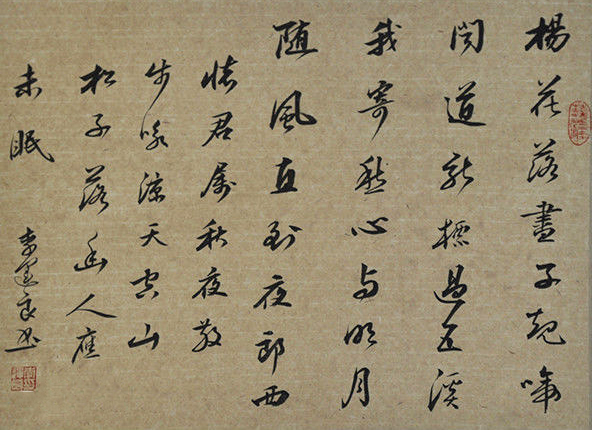 楊花落盡子規啼
聞道龍標過五溪
我寄愁心与明月
随風直到夜郎西
懷君属秋夜散
步咏涼天空山
松子落幽人應
未眠
李建良书